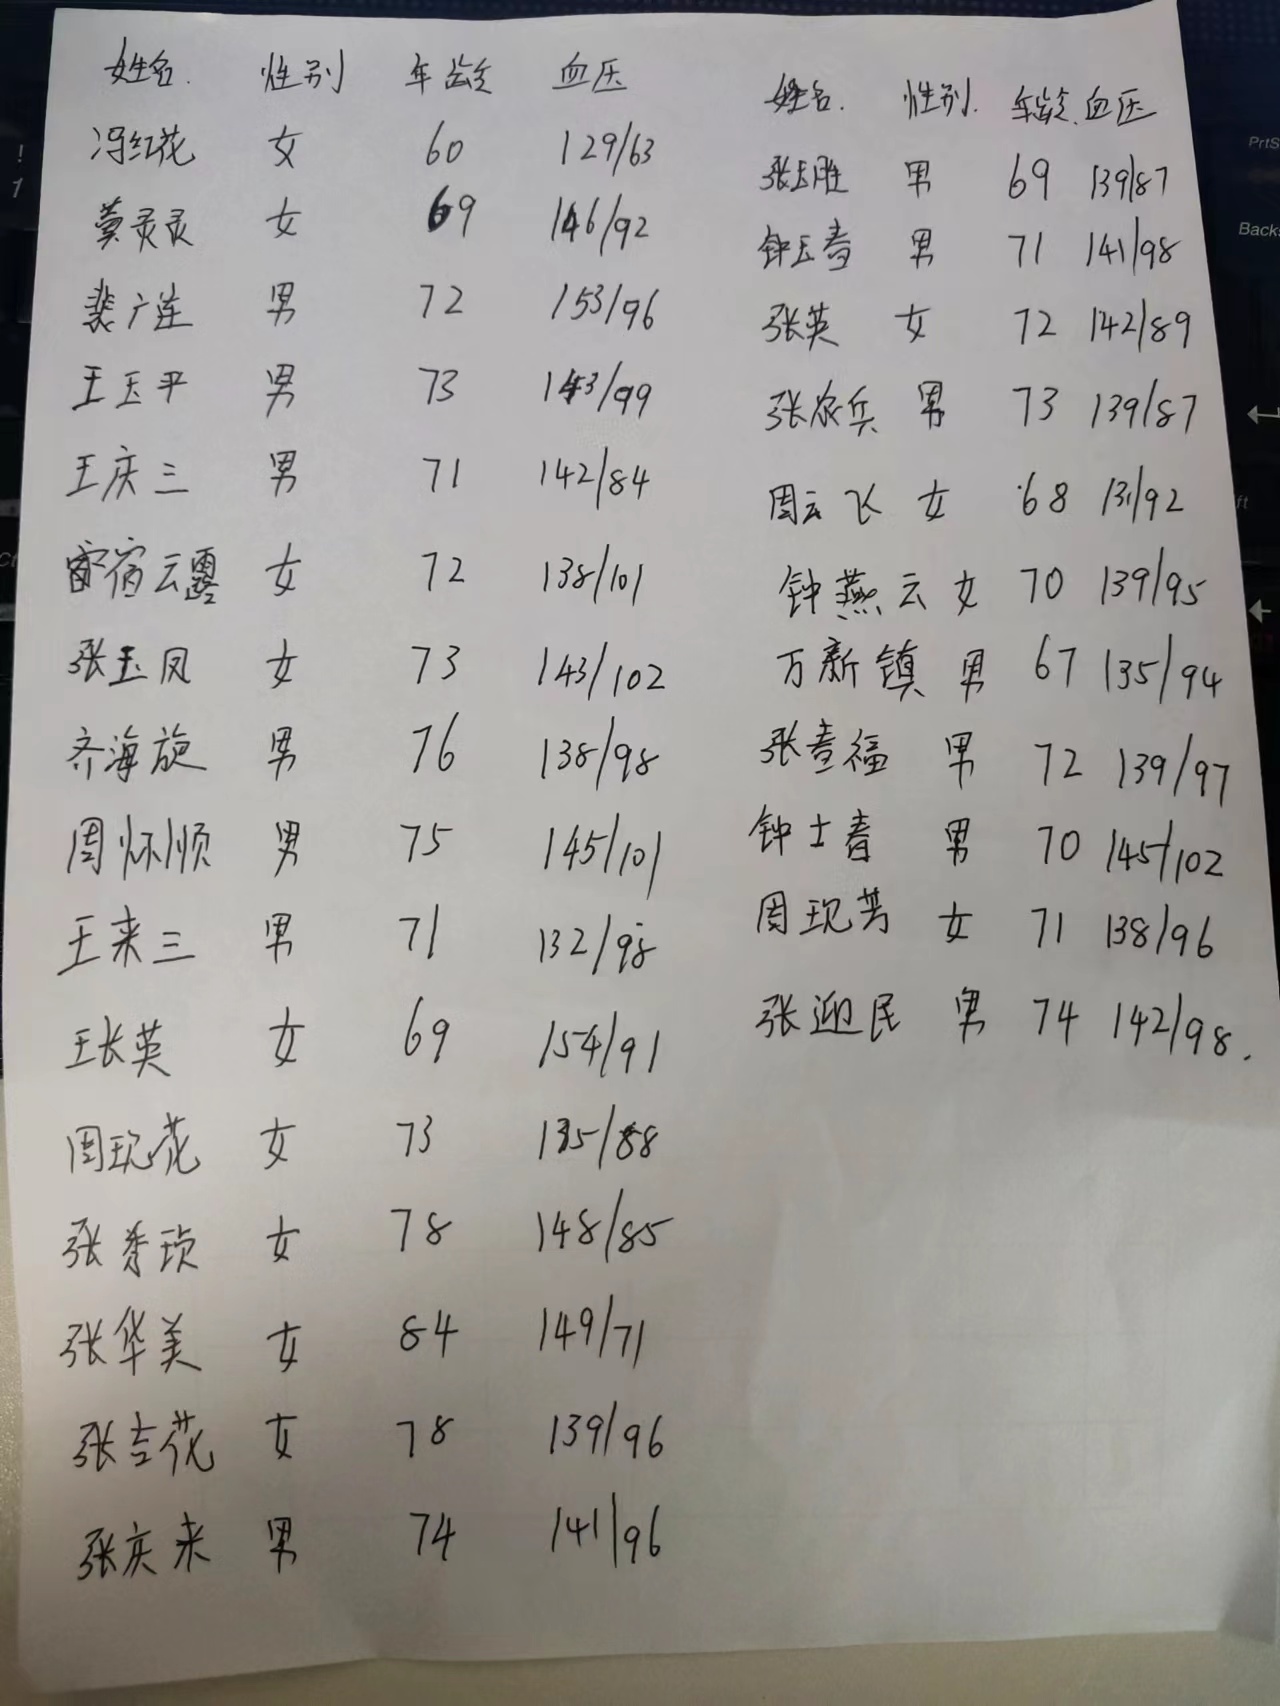 姓名. 性别 年龄 血压
冯红花 女 60 129/63
黄灵灵 女 69 146/92
裴广连 男 72 153/96
王玉平 男 73 143/99
王庆三 男 71 142/84
宿云露 女 72 138/101
张玉凤 女 73 143/102
齐海旋 男 76 138/98
周怀顺 男 75 145/101
王来三 男 71 132/98
王长英 女 69 154/91
周现花 女 73 135/88
张秀琐 女 78 148/85
张华美 女 84 149/71
张吉花 女 78 139/96
张庆来 男 74 141/96
姓名. 性别. 年龄. 血压
张玉胜 男 69 139/87
钟玉春 男 71 141/98
张英 女 72 142/89
张农兵 男 73 139/87
周云飞 女 68 131/92
钟燕云 女 70 139/95
万新镇 男 67 135/94
张福 男 72 139/97
钟士春 男 70 145/102
周现芳 女 71 138/96
张迎民 男 74 142/98.
PrtS
Back